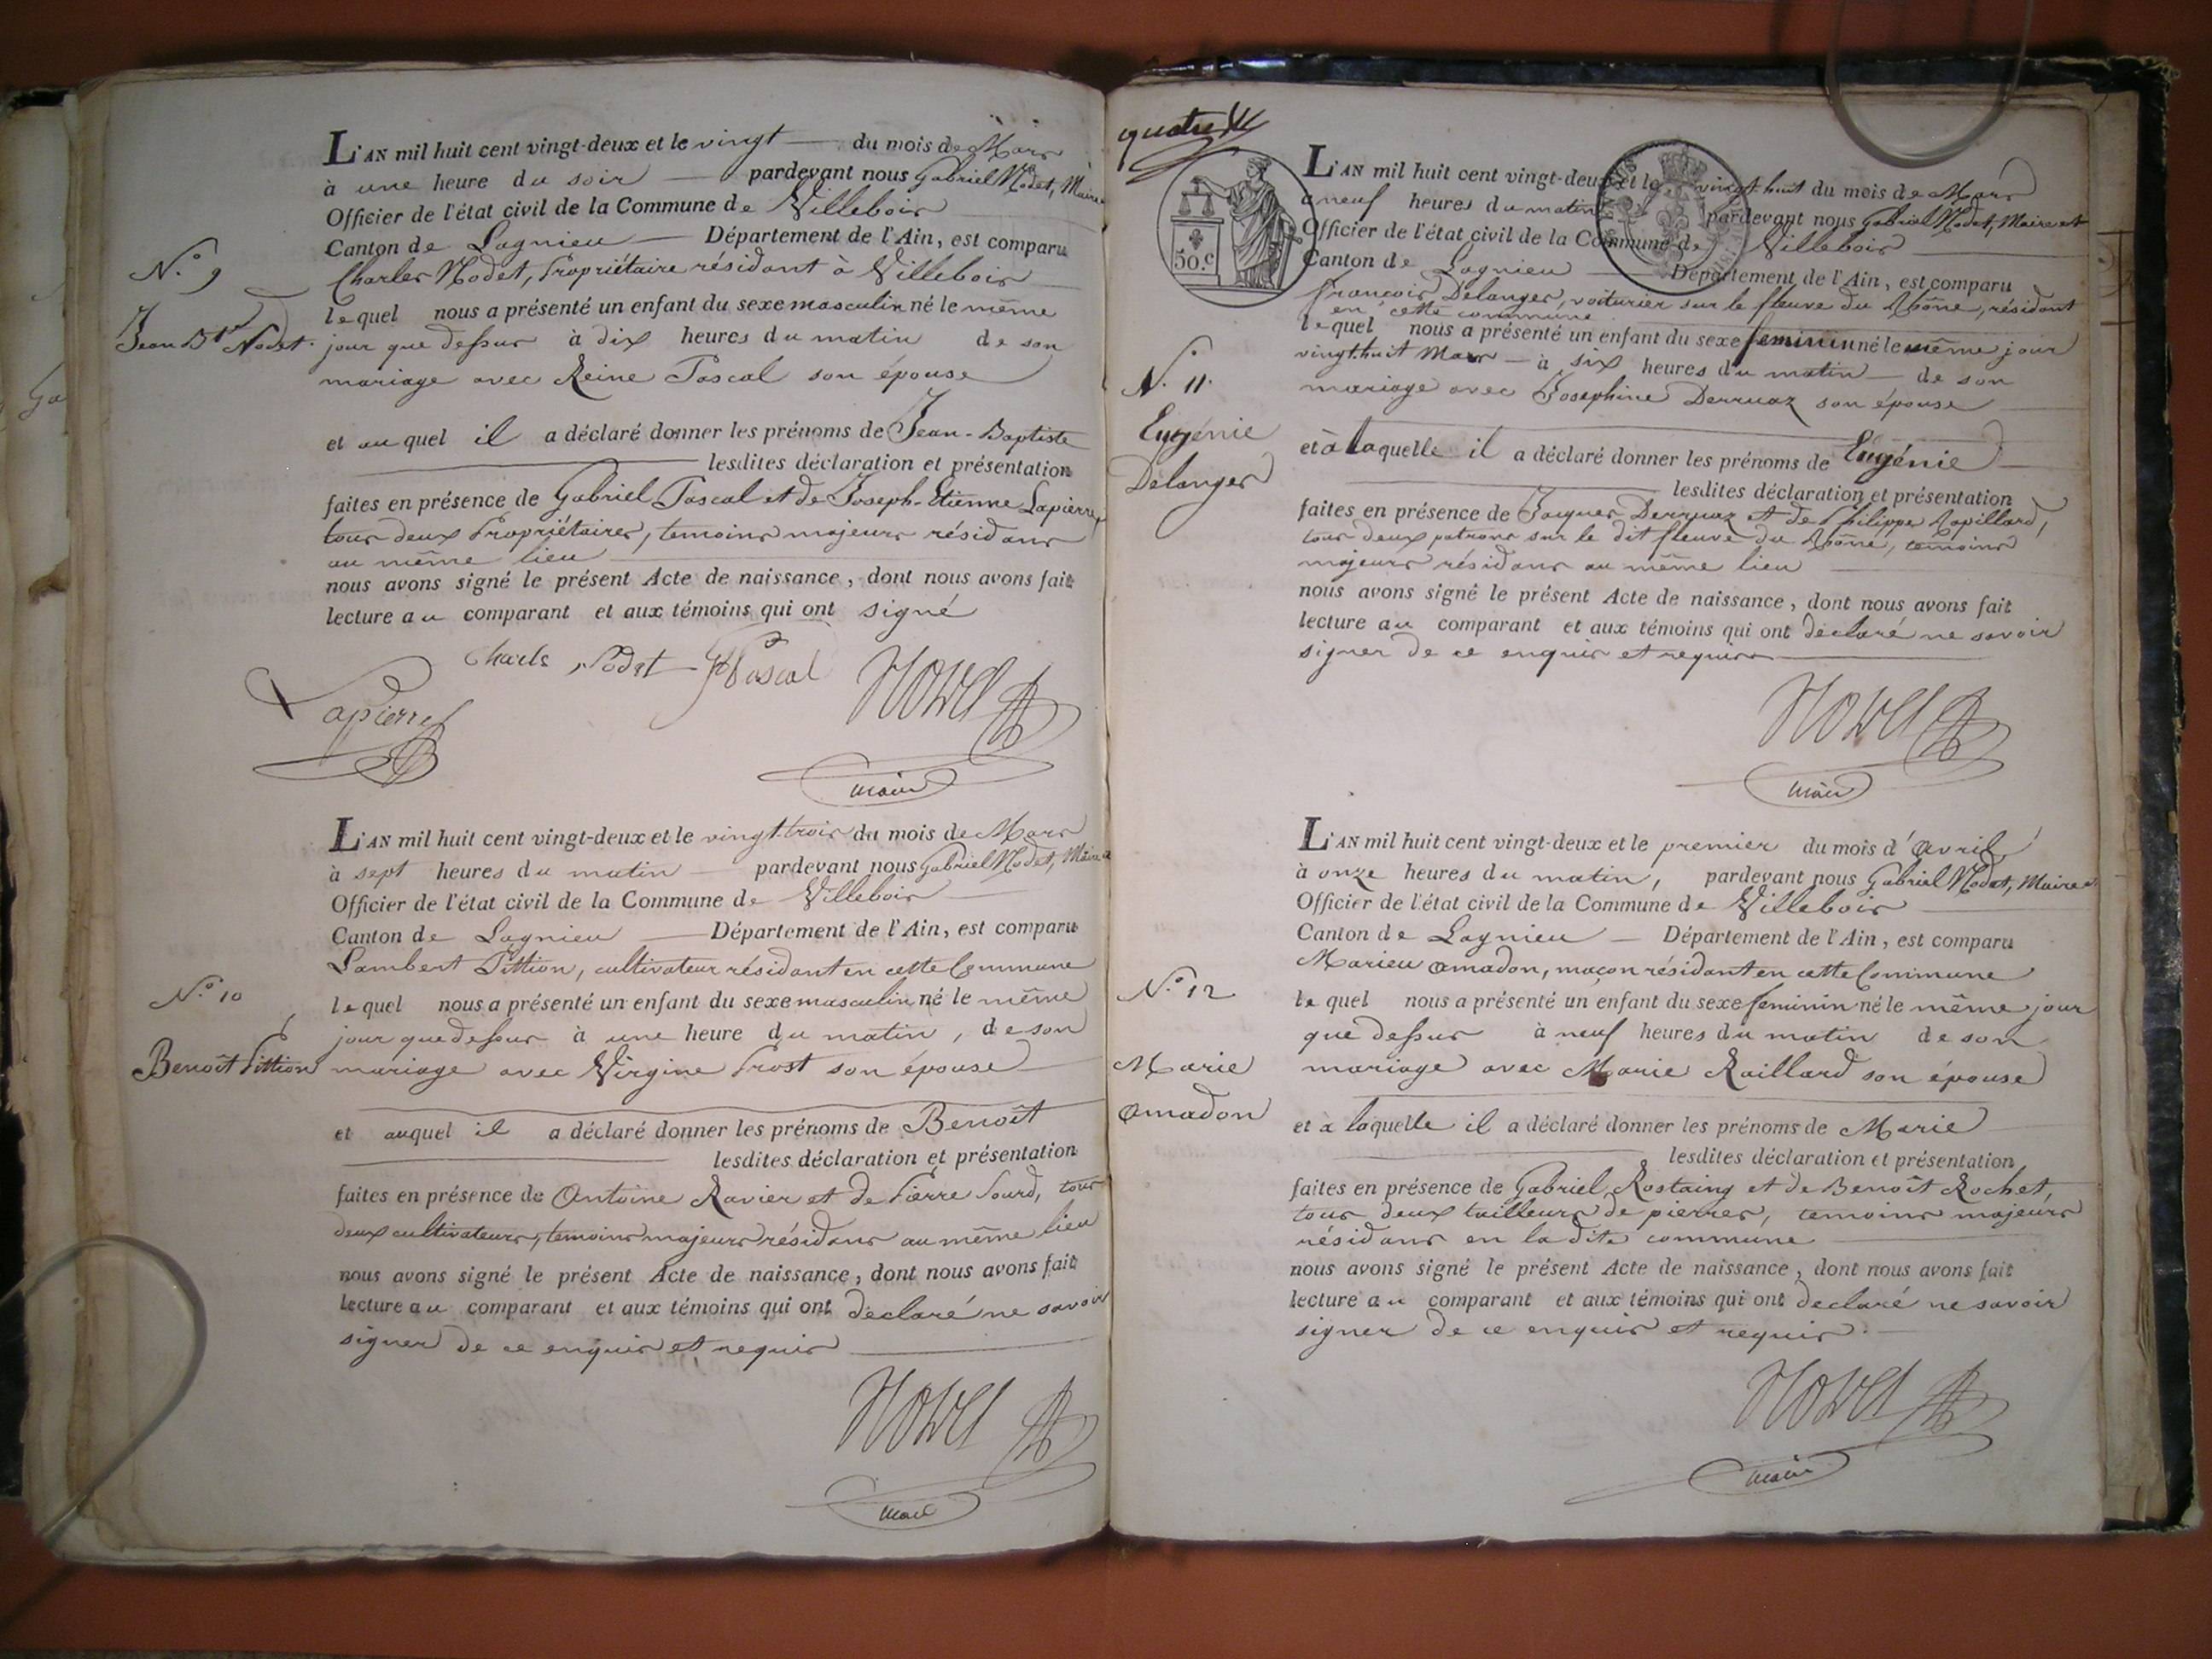 L'AN mil huit cent vingt-deux et le vingt du mois de Mars
à une heure du soir pardevant nous Gabriel Nodet, Maire et
Officier de l'état civil de la Commune de Villebois
Canton de Lagnieu Département de l'Ain, est comparu
Charles Nodet, Propriétaire résidant à Villebois
N.° 9
lequel nous a présenté un enfant du sexe masculin né le même
Jean Bte Nodet.
jour que dessus à dix heures du matin de son
mariage avec Reine Pascal son épouse
et auquel il a déclaré donner les prénoms de Jean-Baptiste
lesdites déclaration et présentation
faites en présence de Gabriel Pascal et de Joseph-Etienne Lapierre,
tous deux Propriétaires, temoins majeurs résidans
au même lieu
nous avons signé le présent Acte de naissance, dont nous avons fait
lecture au comparant et aux témoins qui ont signé
Charle Nodet Pascal Nodet
Lapierre
maire
L'AN mil huit cent vingt-deux et le vingt-trois du mois de Mars
à sept heures du matin pardevant nous Gabriel Nodet, Maire et
Officier de l'état civil de la Commune de Villebois
Canton de Lagnieu Département de l'Ain, est comparu
Lambert Pittion, cultivateur résidant en cette Commune
N.° 10
lequel nous a présenté un enfant du sexe masculin né le même
jour que dessus à une heure du matin, de son
Benoît Pittion
mariage avec Virgine Prost son épouse
et auquel il a déclaré donner les prénoms de Benoît
lesdites déclaration et présentation
faites en présence de Antoine Ravier et de Pierre Sourd, tous
deux cultivateurs, temoins majeurs résidans au même lieu
nous avons signé le présent Acte de naissance, dont nous avons fait
lecture au comparant et aux témoins qui ont declaré ne savoir
signer de ce enquis et requis
Nodet
maire
quatre
50.c
L'AN mil huit cent vingt-deux et le vingt huit du mois de Mars
à neuf heures du matin pardevant nous Gabriel Nodet, Maire et
Officier de l'état civil de la Commune de Villebois
Canton de Lagnieu Département de l'Ain, est comparu
françois Délanger, voiturier sur le fleuve du Rhône, résidant
en cette commune
lequel nous a présenté un enfant du sexe feminin né le même jour
vingt-huit Mars à six heures du matin de son
N.° 11.
mariage avec Josephine Derruaz son épouse
Eugénie
Délanger
et à laquelle il a déclaré donner les prénoms de Eugénie
lesdites déclaration et présentation
faites en présence de Jacques Derruaz et de Philippe Rapillard,
tous deux patrons sur le dit fleuve du Rhône, temoins
majeurs résidans au même lieu
nous avons signé le présent Acte de naissance, dont nous avons fait
lecture au comparant et aux témoins qui ont declaré ne savoir
signer de ce enquis et requis
Nodet
maire
L'AN mil huit cent vingt-deux et le premier du mois d'avril
à onze heures du matin, pardevant nous Gabriel Nodet, Maire et
Officier de l'état civil de la Commune de Villebois
Canton de Lagnieu Département de l'Ain, est comparu
Marieu amadon, maçon résidant en cette Commune
N.° 12
lequel nous a présenté un enfant du sexe feminin né le même jour
que dessus à neuf heures du matin de son
Marie
mariage avec Marie Raillard son épouse
amadon
et à laquelle il a déclaré donner les prénoms de Marie
lesdites déclaration et présentation
faites en présence de Gabriel Rostaing et de Benoît Rochet,
tous deux tailleurs de pierres, temoins majeurs
résidans en la dite commune
nous avons signé le présent Acte de naissance, dont nous avons fait
lecture au comparant et aux témoins qui ont declaré ne savoir
signer de ce enquis et requis.
Nodet
maire